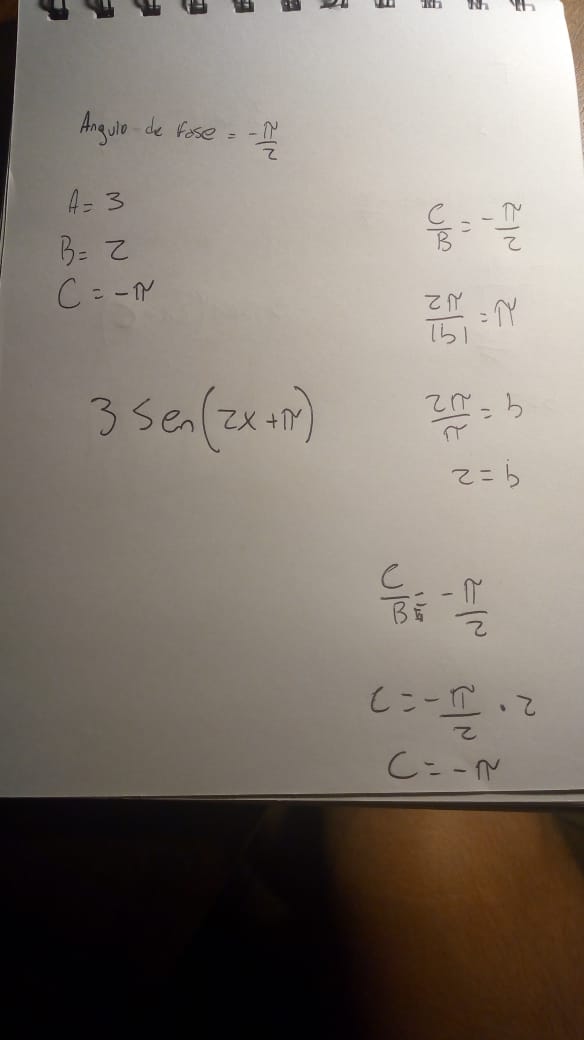 Angulo de fase = -π/2
A= 3
B= 2
C = -π
3 Sen(2x+π)
C/B = -π/2
2π/|b| = π
2π/π = b
2 = b
C/B = -π/2
C = -π/2 · 2
C = -π